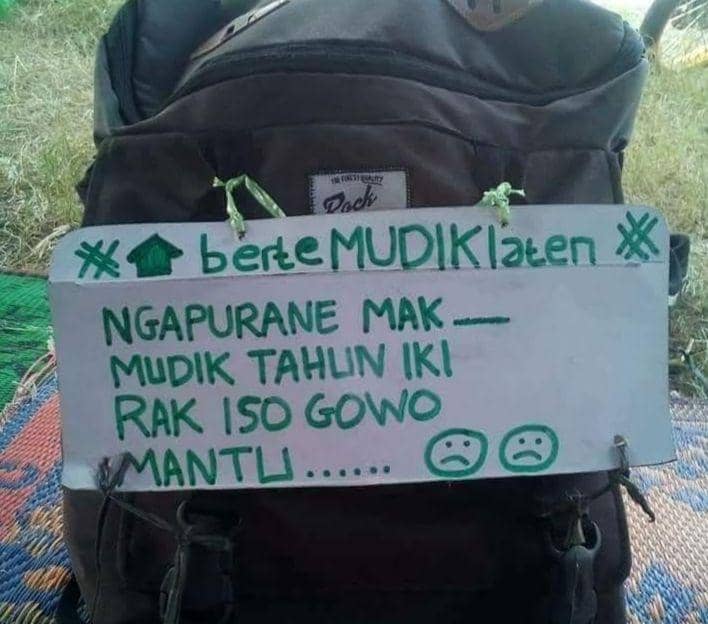 THE FINEST QUALITY
Rock
berteMUDIKlaten
NGAPURANE MAK —
MUDIK TAHUN IKI
RAK ISO GOWO
MANTU ......